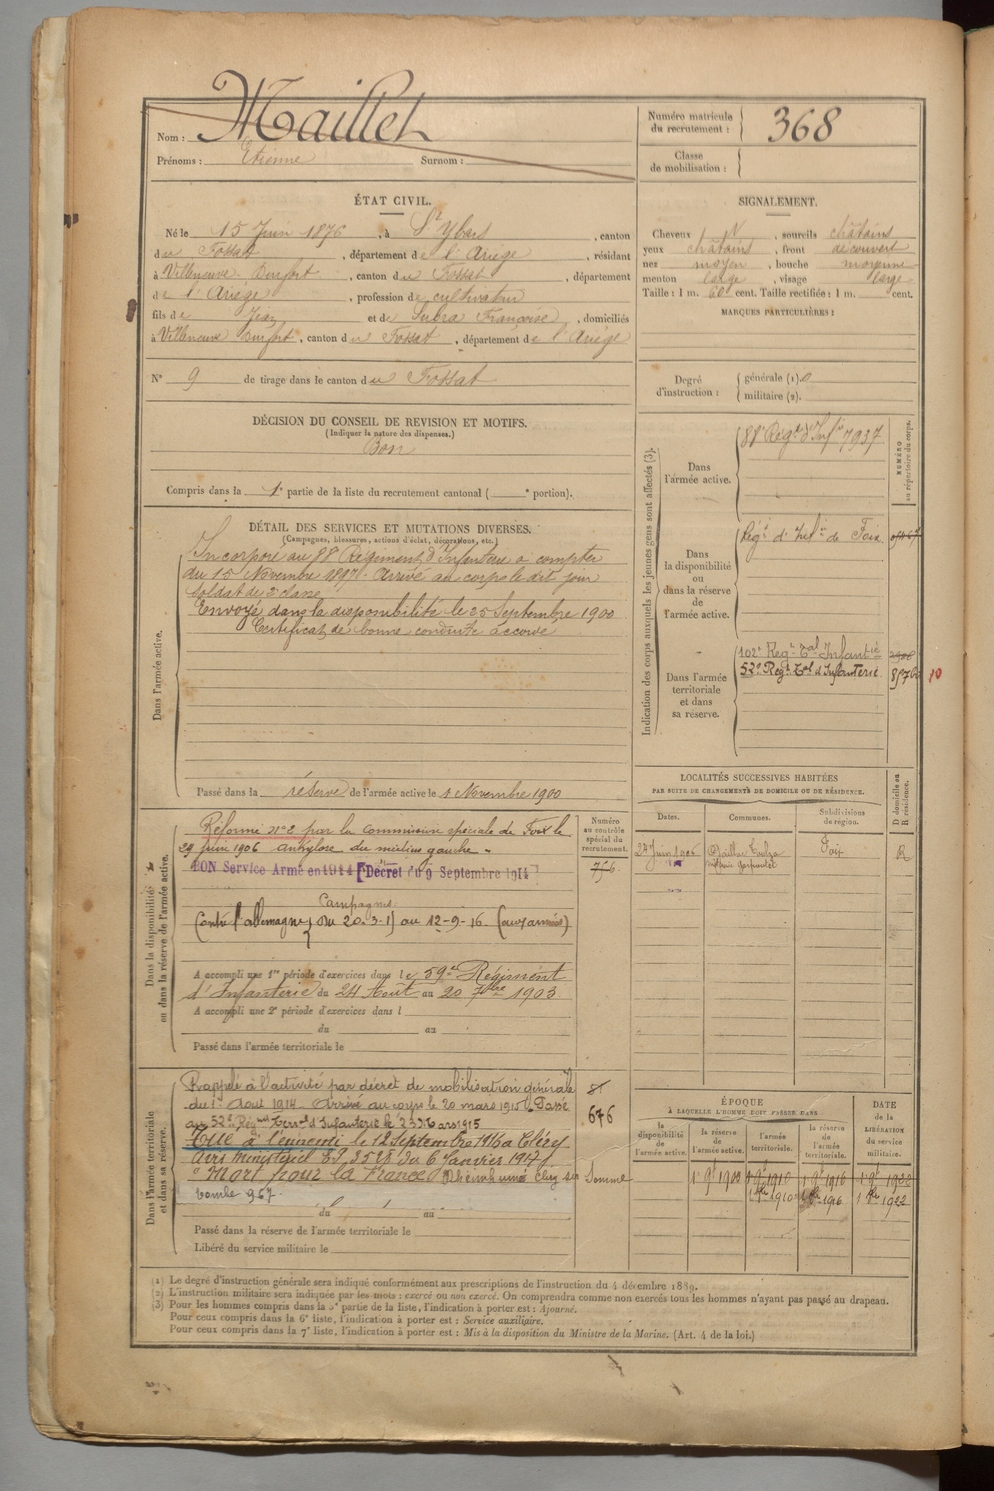 Nom : Maillet
Prénoms : Etienne Surnom :
Numéro matricule
du recrutement : 368
Classe
de mobilisation :
ÉTAT CIVIL.
Né le 15 Juin 1876, à St Ybars, canton
du Fossat, département de l'Ariège, résidant
à Villeneuve Durfort, canton du Fossat, département
de l'Ariège, profession de cultivateur
fils de Jean et de Subra Françoise, domiciliés
à Villeneuve Durfort, canton du Fossat, département de l'Ariège
N° 9 de tirage dans le canton du Fossat
SIGNALEMENT.
Cheveux N, sourcils châtains
yeux châtains, front découvert
nez moyen, bouche moyenne
menton large, visage large
Taille : 1 m. 60 cent. Taille rectifiée : 1 m. cent.
MARQUES PARTICULIÈRES :
Degré
d'instruction :
générale (1). 0
militaire (2).
DÉCISION DU CONSEIL DE REVISION ET MOTIFS.
(Indiquer la nature des dispenses.)
Bon
Compris dans la 1e partie de la liste du recrutement cantonal ( e portion).
DÉTAIL DES SERVICES ET MUTATIONS DIVERSES.
(Campagnes, blessures, actions d'éclat, décorations, etc.)
Dans l'armée active.
Incorporé au 88e Régiment d'Infanterie à compter
du 15 Novembre 1897. Arrivé au corps le dit jour
Soldat de 2e classe
Envoyé dans la disponibilité le 25 Septembre 1900
Certificat de bonne conduite accordé
Passé dans la réserve de l'armée active le 1 Novembre 1900
Indication des corps auxquels les jeunes gens sont affectés (3).
NUMÉRO
au répertoire du corps.
Dans
l'armée active.
88e Régt d'Infie 7937
Dans
la disponibilité
ou
dans la réserve
de
l'armée active.
Régt d'Infie de Foix
Dans l'armée
territoriale
et dans
sa réserve.
102e Regt Tal Infantie
52e Regt Tal d'Infanterie
10
LOCALITÉS SUCCESSIVES HABITÉES
PAR SUITE DE CHANGEMENTS DE DOMICILE OU DE RÉSIDENCE.
D domicile ou
R résidence.
Dates.
Communes.
Subdivisions
de région.
Foix
R
Dans la disponibilité
ou dans la réserve de l'armée active.
Numéro
au contrôle
spécial du
recrutement.
756
Réformé n° 2 par la commission spéciale de Foix le
29 Juin 1906 ankylose du médius gauche
BON Service Armé en 1914 [Décret du 9 Septembre 1914
Campagne
Contre l'allemagne du 20-3-15 au 12-9-16 (aux armées)
A accompli une 1re période d'exercices dans le 59e Régiment
d'Infanterie du 24 Août au 20 7bre 1903
A accompli une 2e période d'exercices dans l
du au
Passé dans l'armée territoriale le
Dans l'armée territoriale
et dans sa réserve.
Rappelé à l'activité par décret de mobilisation générale
du 1er Août 1914. Arrivé au corps le 20 mars 1915. Passé
au 52e Régiment Territal d'Infanterie le 23 Mars 1915
Tué à l'ennemi le 12 Septembre 1916 à Cléry
Avis ministériel du 6 Janvier 1917
"Mort pour la France" Cléry sur Somme
tombe 967
du au
676
Passé dans la réserve de l'armée territoriale le
Libéré du service militaire le
ÉPOQUE
À LAQUELLE L'HOMME DOIT PASSER DANS
DATE
de la
LIBÉRATION
du service
militaire.
la
disponibilité
de l'armée active.
la réserve
de
l'armée active.
l'armée
territoriale.
la réserve
de l'armée
territoriale.
1 9bre 1900 1 9bre 1910 1 9bre 1916 1 9bre 1922
(1) Le degré d'instruction générale sera indiqué conformément aux prescriptions de l'instruction du 4 décembre 1889.
(2) L'instruction militaire sera indiquée par les mots : exercé ou non exercé. On comprendra comme non exercés tous les hommes n'ayant pas passé au drapeau.
(3) Pour les hommes compris dans la 5e partie de la liste, l'indication à porter est : Ajourné.
Pour ceux compris dans la 6e liste, l'indication à porter est : Service auxiliaire.
Pour ceux compris dans la 7e liste, l'indication à porter est : Mis à la disposition du Ministre de la Marine. (Art. 4 de la loi.)